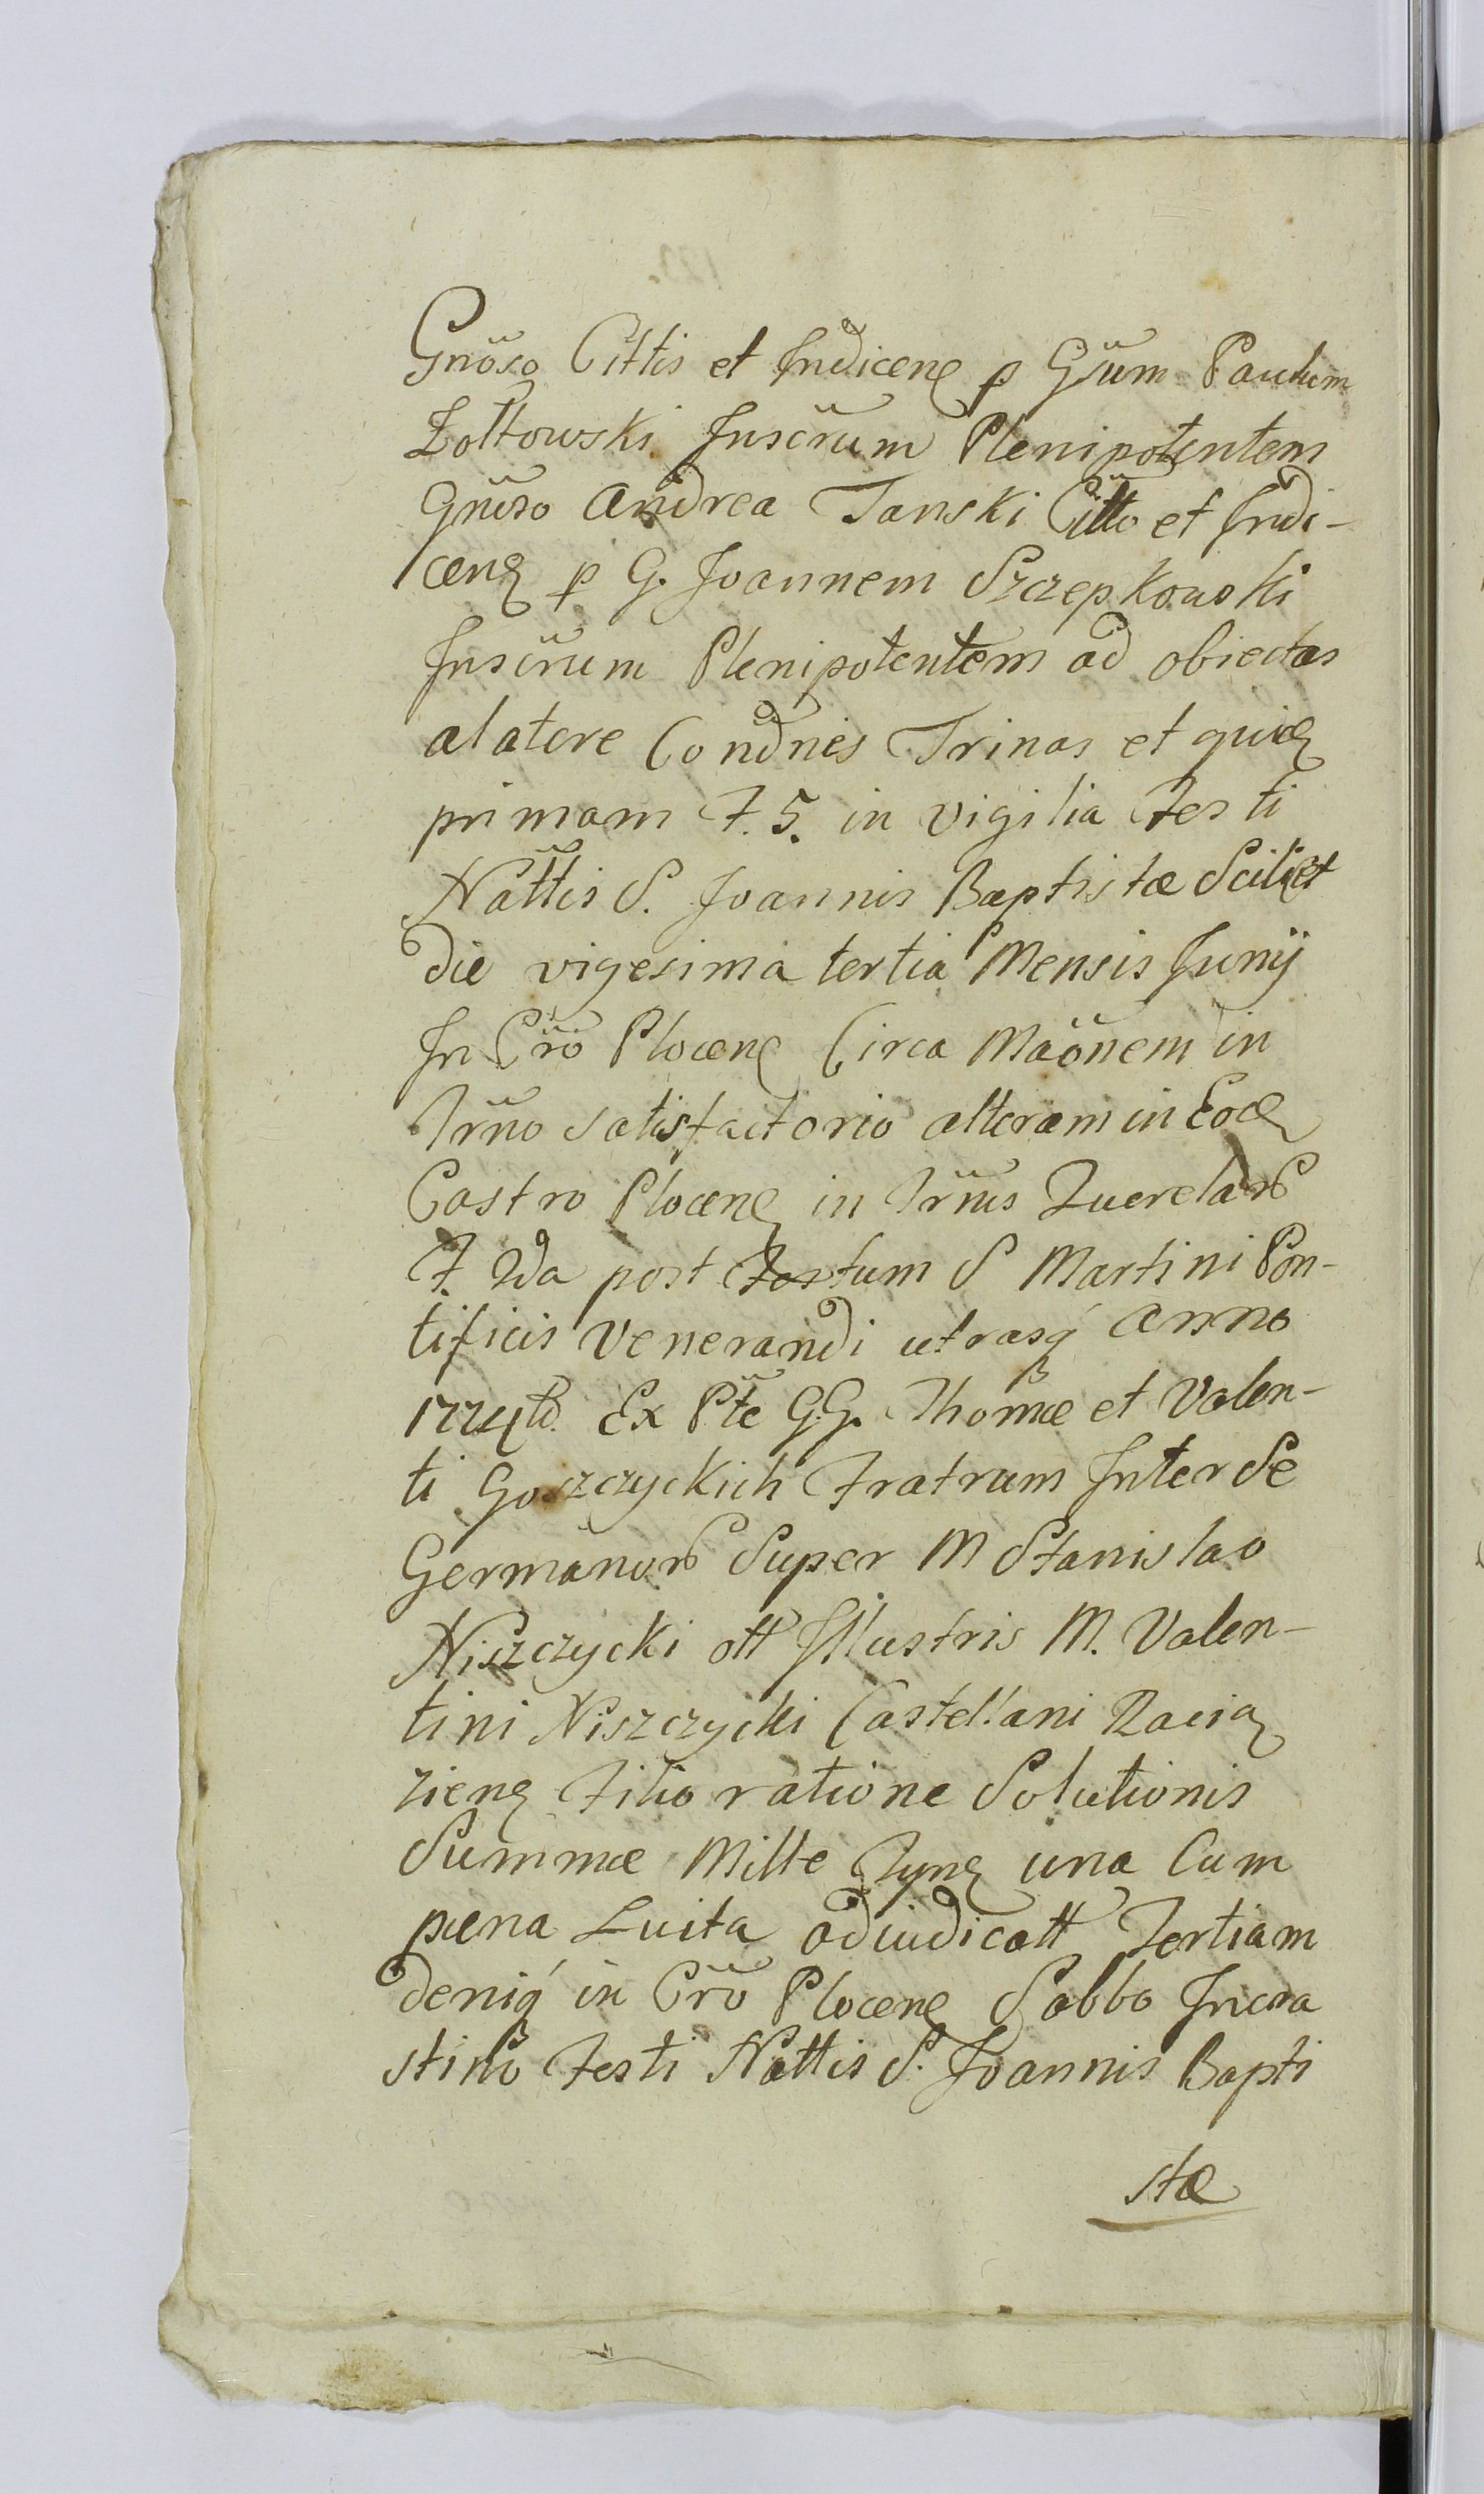 Gnoso Cittis et Indicen p Gnum Paulum
Żołtowski Inscrum Plenipotentem
Gnoso Andrea Tanski Citto et Indi-
cen p G. Joannem Szczepkowski
Inscrum Plenipotentem ad obiectas
alatere Condnes Trinas et quid
primam F. 5. in vigilia Festi
Nattis S. Joannis Baptistæ Scilict
die vigesima tertia Mensis Junij
In Cro Plocen Circa Maonem in
Trno satisfactorio alteram in Eod
Castro Plocen in Trnis Querelar
F. 2da post Festum S Martini Pon-
tificis Venerandi utrasq Anno
1724to. Ex Pte G.G. Thomæ et Valen-
ti Goszczyckich Fratrum Inter Se
Germanor Super M Stanislao
Niszczycki ott Illustris M. Valen-
tini Niszczycki Castellani Racią
zien Filio ratione Solutionis
Summæ Mille Tyn una Cum
pæna Luita adiudicatt Tertiam
deniq in Cro Plocen Sabbo Incra
stino Festi Nattis S. Joannis Bapti
stæ